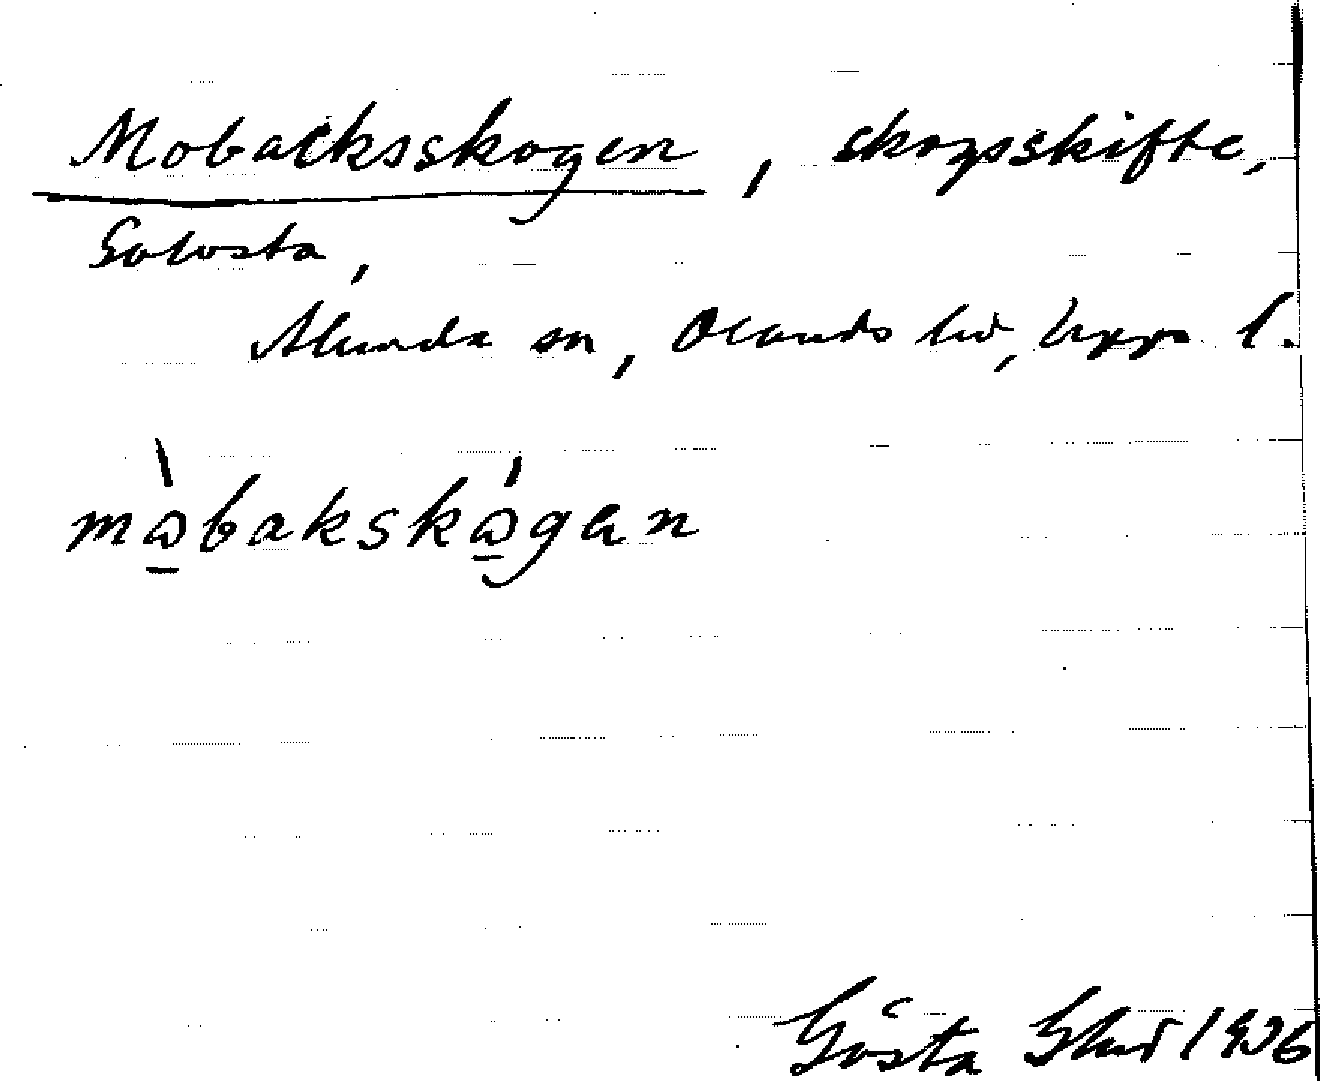 Mobacksskogen, skogsskifte,
Golvsta,
Alunda sn, Olands hd, Upps. l.
mòbakskógan
Gösta 1936